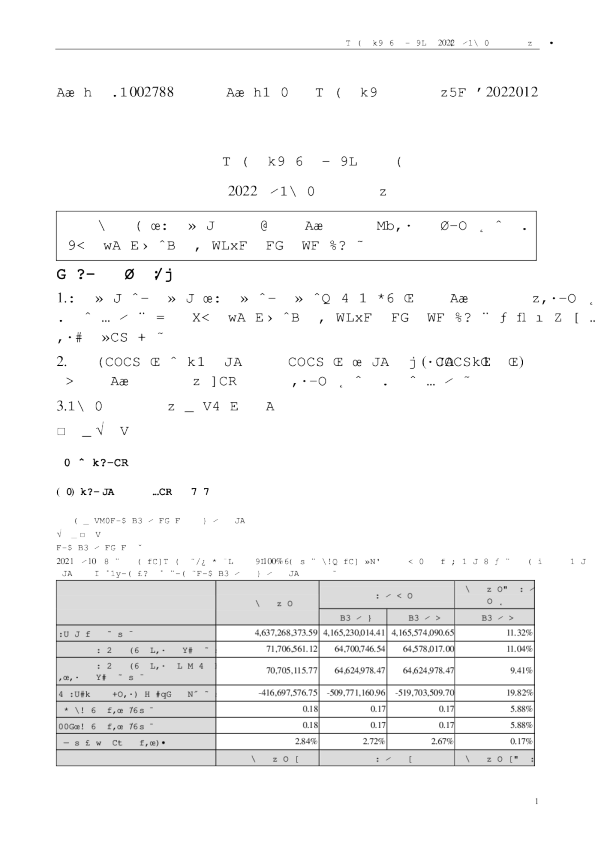 T ( k9 6 – 9L 2022 ⁄1\ 0 z •
Aæ h .1002788 Aæ h1 0 T ( k9 z5F ’2022012
T ( k9 6 – 9L (
2022 ⁄1\ 0 z
\ ( œ: » J @ Aæ Mb,· Ø–O ˛ ˆ .
9< wA E› ˆB , WLxF FG WF %? ˜
G ?– Ø :/j
1.: » J ˆ– » J œ: » ˆ– » ˆQ 4 1 *6 Œ Aæ z,·–O ˛
. ˆ … ⁄ ¨ = X< wA E› ˆB , WLxF FG WF %? ¨ ƒ fl ı Z [ …
,·# »CS + ˜
2. (COCS Œ ˆ k1 JA COCS Œ œ JA j(· Œ Œ)
> Aæ z ]CR ,·–O ˛ ˆ . ˆ … ⁄ ˜
3.1\ 0 z _ V4 E A
□ _√ V
0 ˆ k?–CR
( 0) k?– JA …CR 7 7
( _ VM0F–$ B3 ⁄ FG F } ⁄ JA
√ _□ V
F–$ B3 ⁄ FG F ˜
2021 ⁄10 8 ¨ ( fC]T ( ¨/¿ * ˆL 100%6( s ¨ \!Q fC] »N' < 0 f ; 1 J 8 ƒ ¨ ( i 1 J
JA I ˆly–( £? ' ¨–( ˆF–$ B3 ⁄ } ⁄ JA ˜
\ z O
: ⁄ < O
\ z O" : ⁄
O .
B3 ⁄ } B3 ⁄ > B3 ⁄ >
:U J f ˜ s ˜ 4,637,268,373.59 4,165,230,014.41 4,165,574,090.65 11.32%
: 2 (6 L,· Y# ˜ 71,706,561.12 64,700,746.54 64,578,017.00 11.04%
: 2 (6 L,· L M 4
,œ,· Y# ˜ s ˜ 70,705,115.77 64,624,978.47 64,624,978.47 9.41%
4 :U#k +O,·) H #qG N˜ ˜ -416,697,576.75 -509,771,160.96 -519,703,509.70 19.82%
* \! 6 f,œ 76 s ˜ 0.18 0.17 0.17 5.88%
00Gœ! 6 f,œ 76 s ˜ 0.18 0.17 0.17 5.88%
— s £ w Ct f,œ)• 2.84% 2.72% 2.67% 0.17%
\ z O [ : ⁄ [ \ z O [" :
1